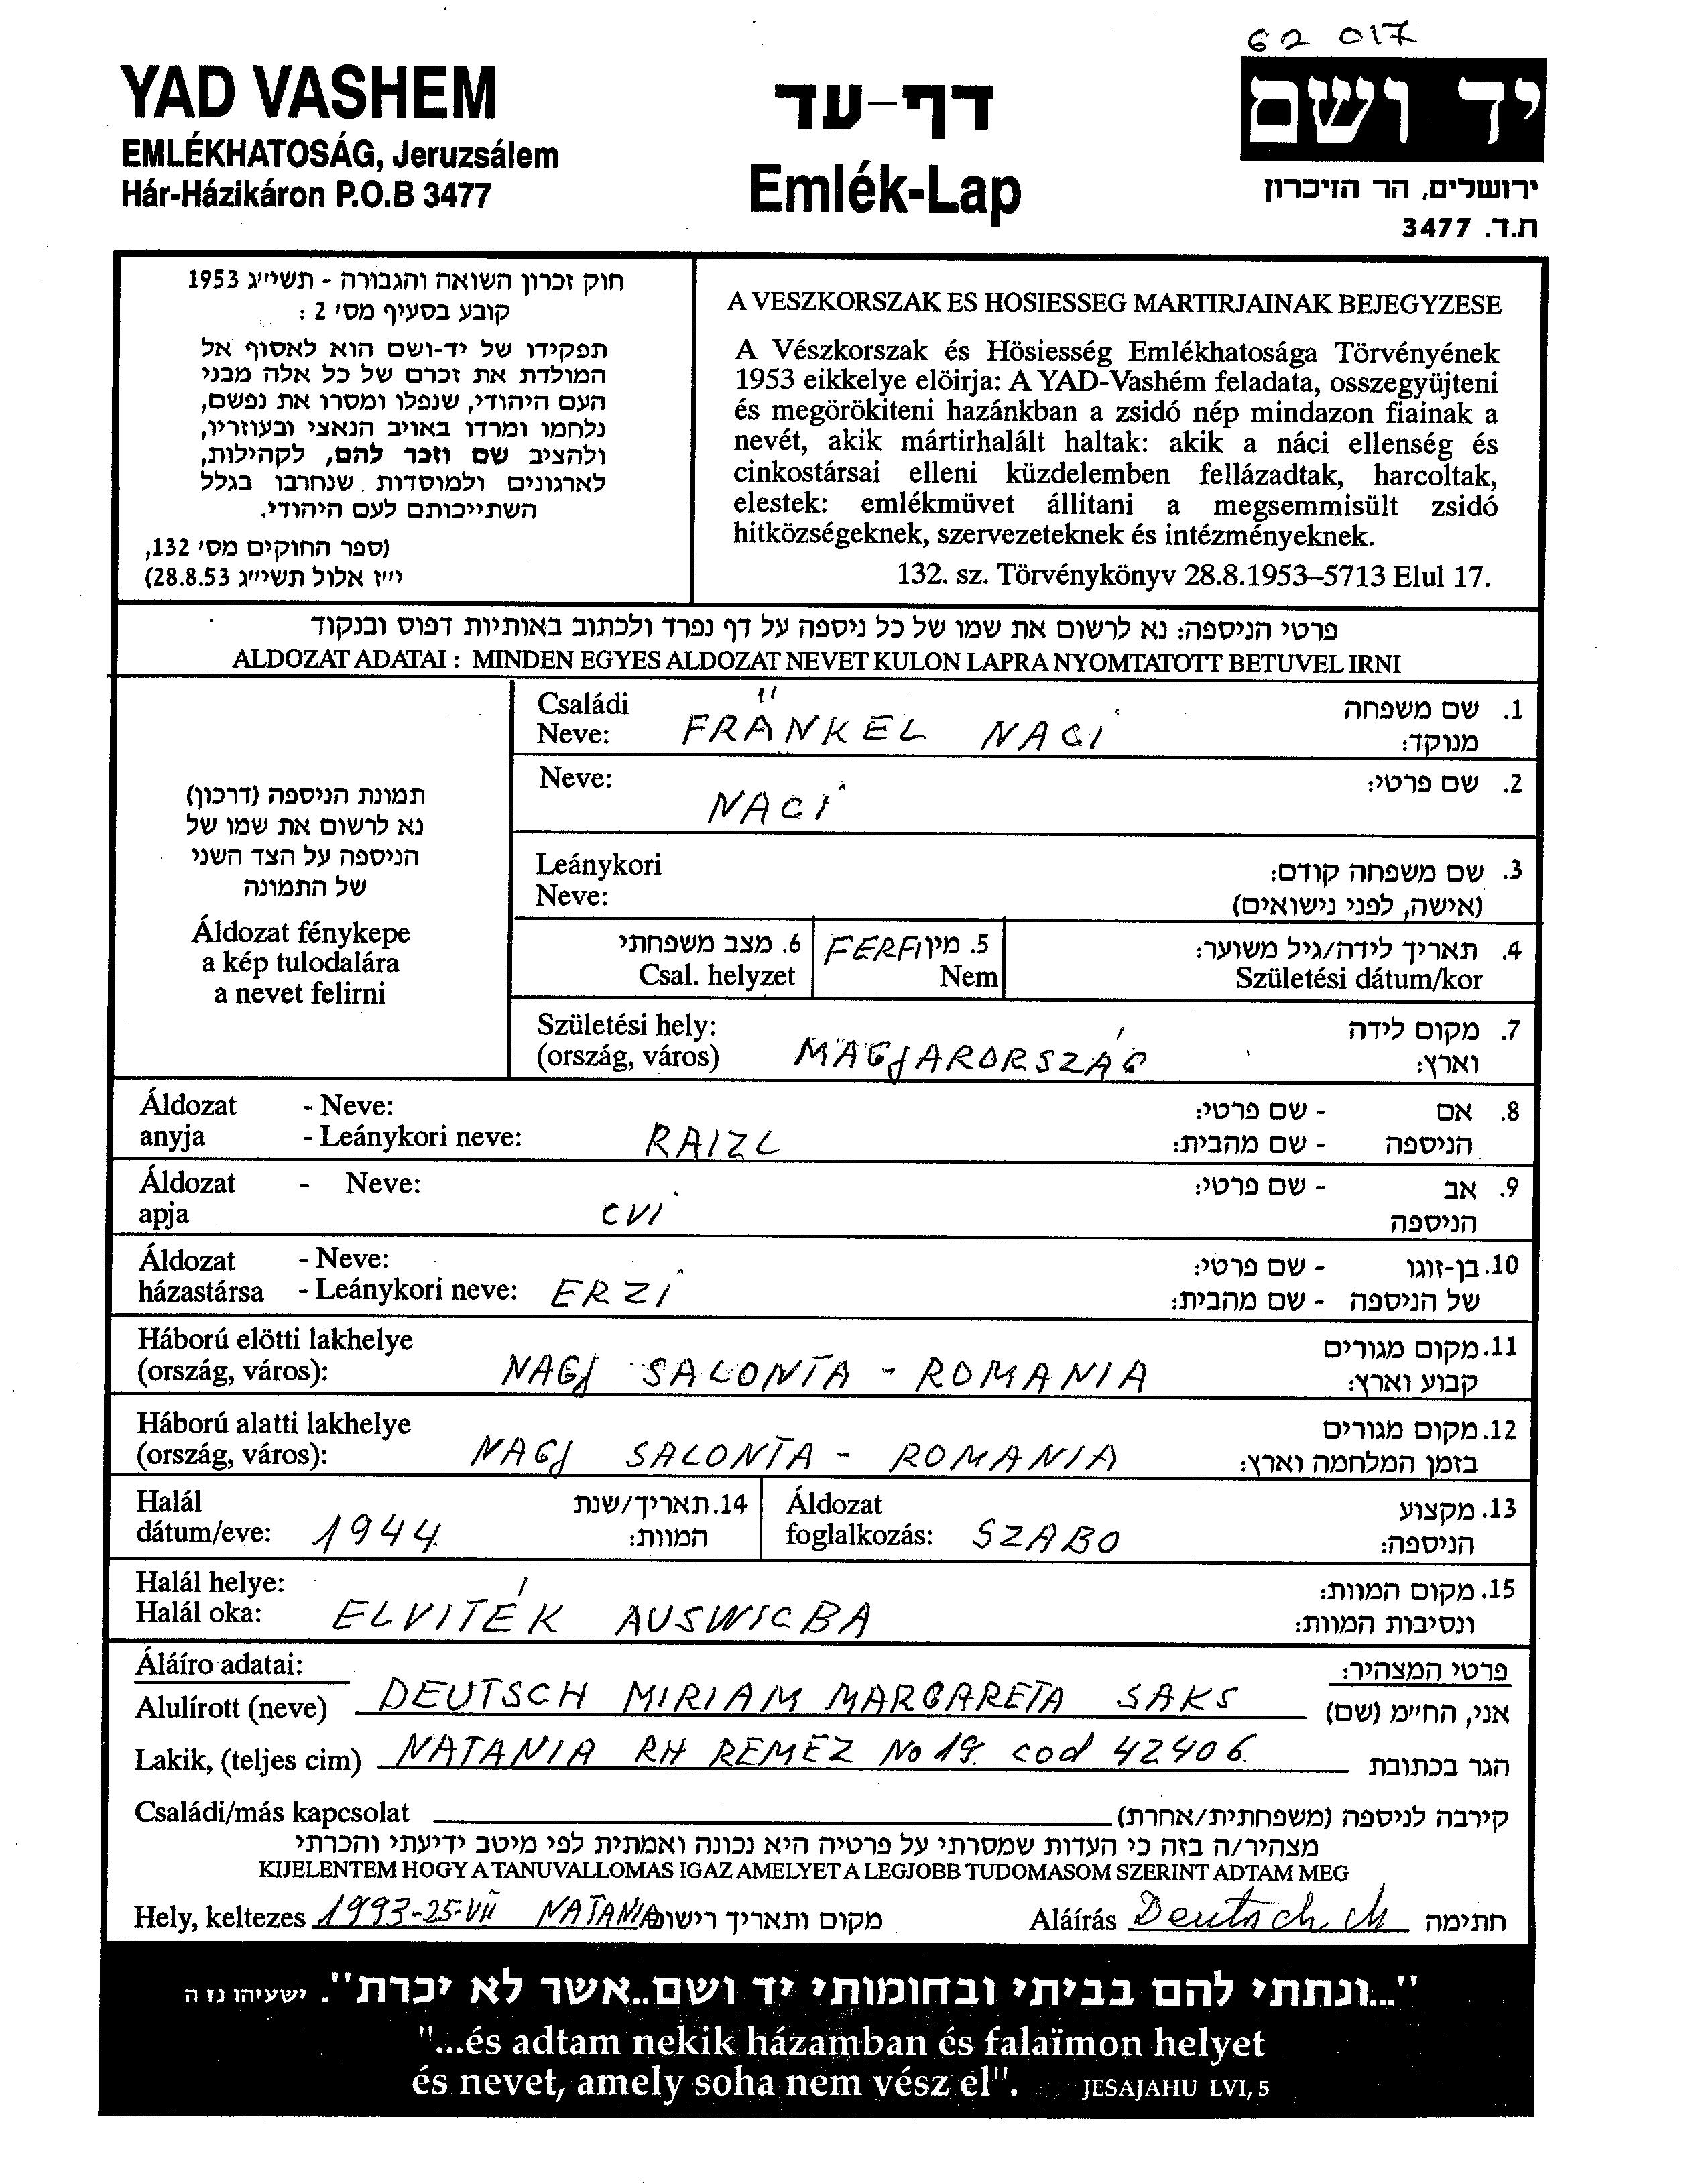 62 017
YAD VASHEM
EMLÉKHATOSÁG, Jeruzsálem
Hár-Házikáron P.O.B 3477
דף-עד
Emlék-Lap
יד ושם
ירושלים, הר הזיכרון
ת.ד. 3477
חוק זכרון השואה והגבורה - תשי״ג 1953
קובע בסעיף מס׳ 2 :
תפקידו של יד-ושם הוא לאסוף אל
המולדת את זכרם של כל אלה מבני
העם היהודי, שנפלו ומסרו את נפשם,
נלחמו ומרדו באויב הנאצי ובעוזריו,
ולהציב שם וזכר להם, לקהילות,
לארגונים ולמוסדות שנחרבו בגלל
השתייכותם לעם היהודי.
(ספר החוקים מס׳ 132,
י״ז אלול תשי״ג 28.8.53)
A VESZKORSZAK ES HOSIESSEG MARTIRJAINAK BEJEGYZESE
A Vészkorszak és Hösiesség Emlékhatosága Törvényének
1953 eikkelye elöirja: A YAD-Vashém feladata, osszegyüjteni
és megörökiteni hazánkban a zsidó nép mindazon fiainak a
nevét, akik mártirhalált haltak: akik a náci ellenség és
cinkostársai elleni küzdelemben fellázadtak, harcoltak,
elestek: emlékmüvet állitani a megsemmisült zsidó
hitközségeknek, szervezeteknek és intézményeknek.
132. sz. Törvénykönyv 28.8.1953–5713 Elul 17.
פרטי הניספה: נא לרשום את שמו של כל ניספה על דף נפרד ולכתוב באותיות דפוס ובנקוד
ALDOZAT ADATAI : MINDEN EGYES ALDOZAT NEVET KULON LAPRA NYOMTATOTT BETUVEL IRNI
תמונת הניספה (דרכון)
נא לרשום את שמו של
הניספה על הצד השני
של התמונה
Áldozat fénykepe
a kép tulodalára
a nevet felirni
Családi
Neve: FRÄNKEL NACI
1. שם משפחה
מנוקד:
Neve: NACI
2. שם פרטי:
Leánykori
Neve:
3. שם משפחה קודם:
(אישה, לפני נישואים)
6. מצב משפחתי
Csal. helyzet
5. מין FERFI
Nem
4. תאריך לידה/גיל משוער:
Születési dátum/kor
Születési hely:
(ország, város) MAGJARORSZÁG
7. מקום לידה
וארץ:
Áldozat - Neve:
anyja - Leánykori neve: RAIZL
8. אם - שם פרטי:
הניספה - שם מהבית:
Áldozat - Neve:
apja CVI
9. אב - שם פרטי:
הניספה
Áldozat - Neve:
házastársa - Leánykori neve: ERZI
10. בן-זוגו - שם פרטי:
של הניספה - שם מהבית:
Háború elötti lakhelye
(ország, város): NAGJ SALONTA - ROMANIA
11. מקום מגורים
קבוע וארץ:
Háború alatti lakhelye
(ország, város): NAGJ SALONTA - ROMANIA
12. מקום מגורים
בזמן המלחמה וארץ:
Halál
dátum/eve: 1944
14. תאריך/שנת
המוות:
Áldozat
foglalkozás: SZABO
13. מקצוע
הניספה:
Halál helye:
Halál oka: ELVITÉK AUSWICBA
15. מקום המוות:
ונסיבות המוות:
Áláíro adatai:
פרטי המצהיר:
Alulírott (neve) DEUTSCH MIRIAM MARGARETA SAKS אני, החי״מ (שם)
Lakik, (teljes cim) NATANIA RH REMEZ No 19. cod 42406. הגר בכתובת
Családi/más kapcsolat קירבה לניספה (משפחתית/אחרת)
מצהיר/ה בזה כי העדות שמסרתי על פרטיה היא נכונה ואמתית לפי מיטב ידיעתי והכרתי
KIJELENTEM HOGY A TANUVALLOMAS IGAZ AMELYET A LEGJOBB TUDOMASOM SZERINT ADTAM MEG
Hely, keltezes 1993-25-VII NATANIA מקום ותאריך רישום Aláírás Deutsch M חתימה
"...ונתתי להם בביתי ובחומותי יד ושם..אשר לא יכרת". ישעיהו נז ה
"...és adtam nekik házamban és falaïmon helyet
és nevet, amely soha nem vész el". JESAJAHU LVI, 5